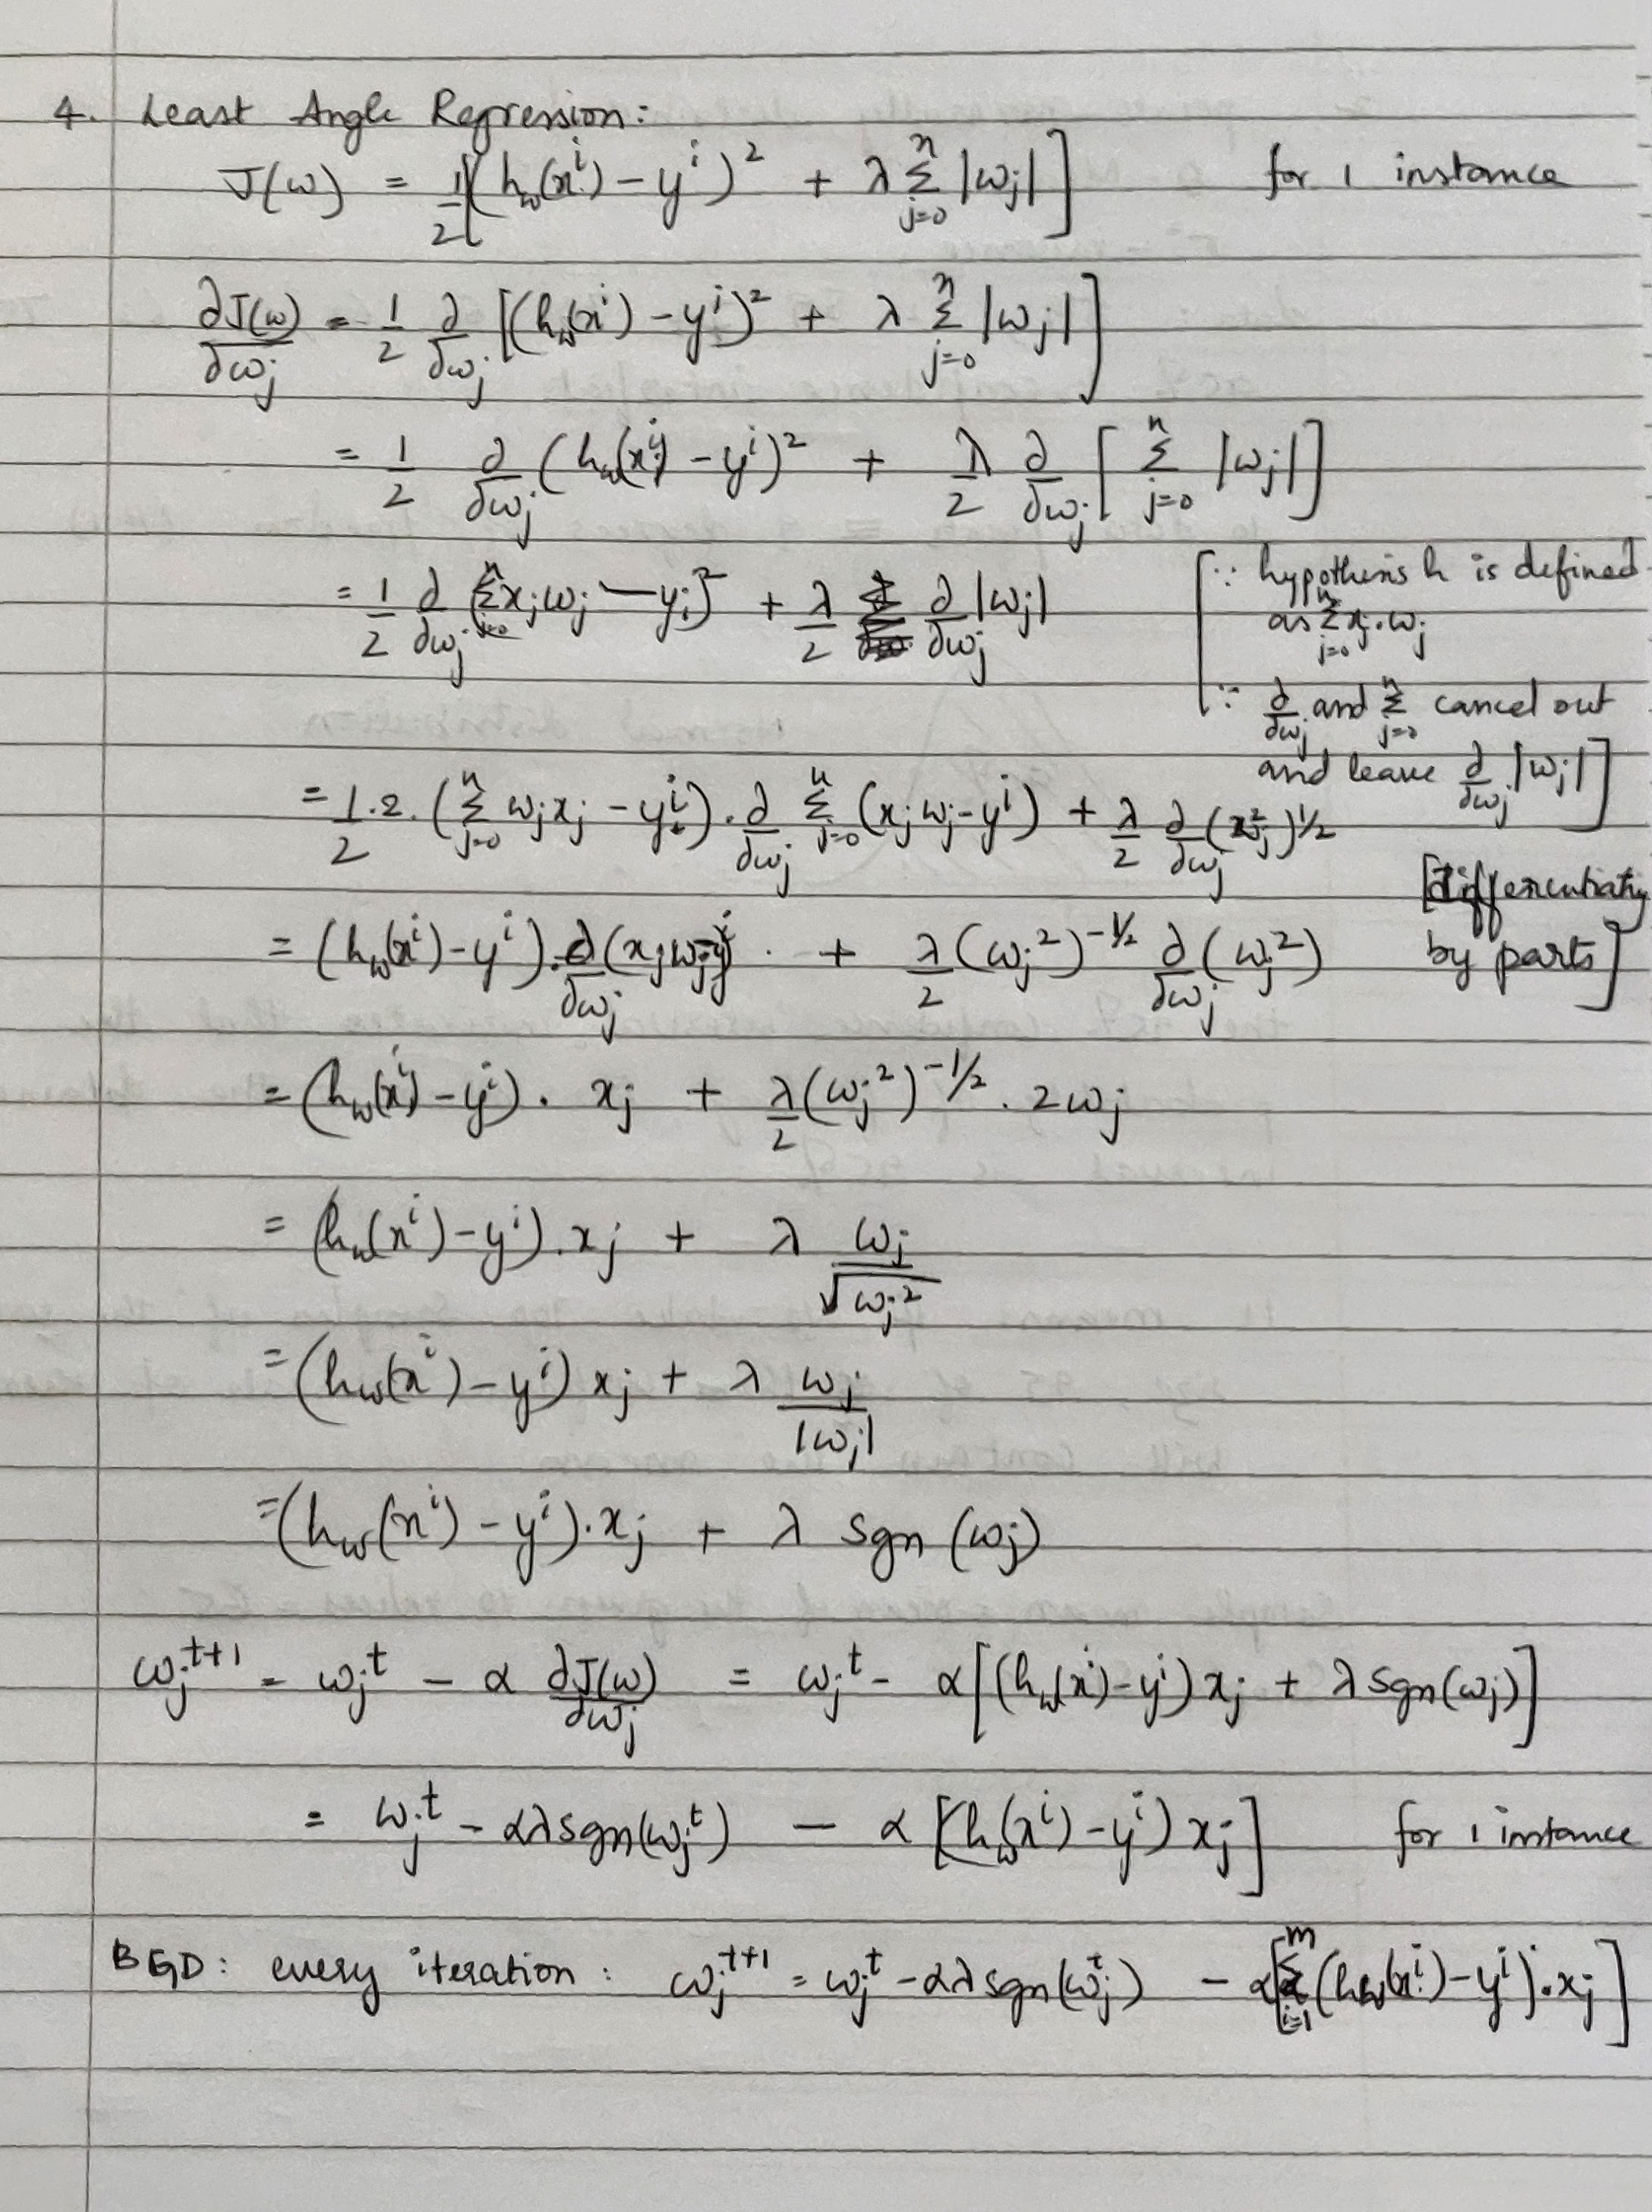 4. Least Angle Regression:
J(ω) = 1/2[(h_w(x^i) - y^i)^2 + λ Σ_{j=0}^{n} |ω_j|] for 1 instance
∂J(ω)/∂ω_j = 1/2 ∂/∂ω_j [(h_w(x^i) - y^i)^2 + λ Σ_{j=0}^{n} |ω_j|]
= 1/2 ∂/∂ω_j (h_w(x^i) - y^i)^2 + λ/2 ∂/∂ω_j [Σ_{j=0}^{n} |ω_j|]
= 1/2 ∂/∂ω_j (Σ_{j=0}^{n} x_j ω_j - y_i)^2 + λ/2 ∂/∂ω_j |ω_j|
[∵ hypothesis h is defined
as Σ_{j=0}^{n} x_j·ω_j
∵ ∂/∂ω_j and Σ_{j=0}^{n} cancel out
and leave ∂/∂ω_j |ω_j|]
= 1/2 · 2 · (Σ_{j=0}^{n} ω_j x_j - y^i) · ∂/∂ω_j Σ_{j=0}^{n} (x_j ω_j - y^i) + λ/2 ∂/∂ω_j (ω_j^2)^{1/2}
[differentiating
by parts]
= (h_w(x^i) - y^i) · ∂/∂ω_j (x_j ω_j - y^i) + λ/2 (ω_j^2)^{-1/2} ∂/∂ω_j (ω_j^2)
= (h_w(x^i) - y^i) · x_j + λ/2 (ω_j^2)^{-1/2} · 2ω_j
= (h_w(x^i) - y^i) · x_j + λ ω_j/√ω_j^2
= (h_w(x^i) - y^i) x_j + λ ω_j/|ω_j|
= (h_w(x^i) - y^i) · x_j + λ sgn(ω_j)
ω_j^{t+1} = ω_j^t - α ∂J(ω)/∂ω_j = ω_j^t - α[(h_w(x^i) - y^i) x_j + λ sgn(ω_j)]
= ω_j^t - αλ sgn(ω_j^t) - α [(h_w(x^i) - y^i) x_j] for 1 instance
BGD: every iteration: ω_j^{t+1} = ω_j^t - αλ sgn(ω_j^t) - α[Σ_{i=1}^{m} (h_w(x^i) - y^i) · x_j]